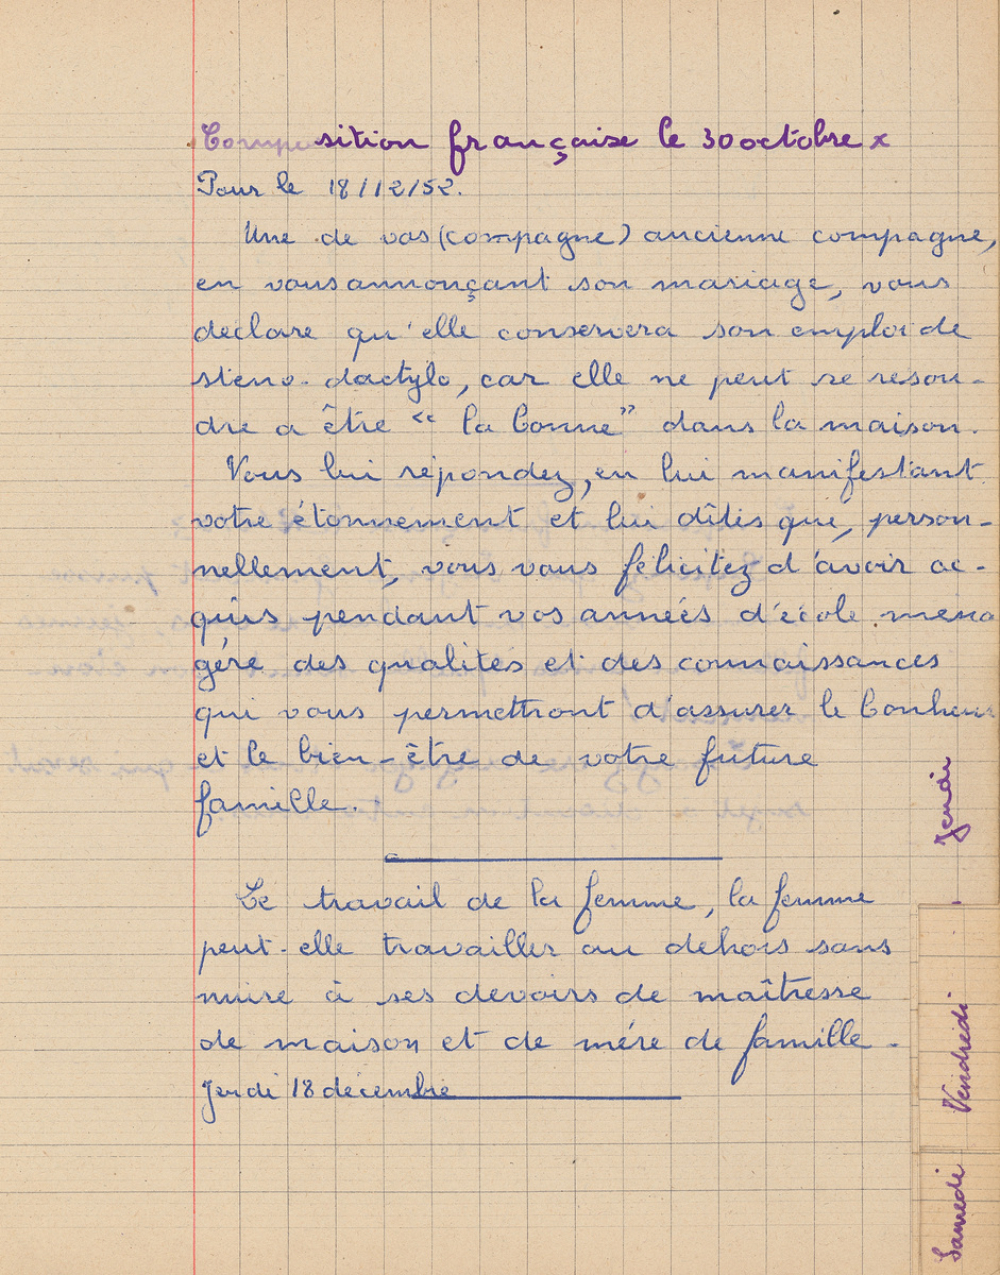 Composition française le 30 octobre x
Pour le 18/12/52.
Une de vos (compagne) ancienne compagne,
en vous annonçant son mariage, vous
declare qu'elle conservera son emploi de
steno-dactylo, car elle ne peut se resou-
dre a être " la bonne" dans la maison.
Vous lui répondez, en lui manifestant
votre étonnement et lui dîtes que, person-
nellement, vous vous félicitez d'avoir ac-
quis pendant vos années d'école ména
gére des qualités et des connaissances
qui vous permettront d'assurer le bonheur
et le bien-être de votre future
famille.
Le travail de la femme, la femme
peut-elle travailler au dehors sans
nuire à ses devoirs de maîtresse
de maison et de mére de famille.
Jeudi 18 décembre
Jeudi
Vendredi
Samedi